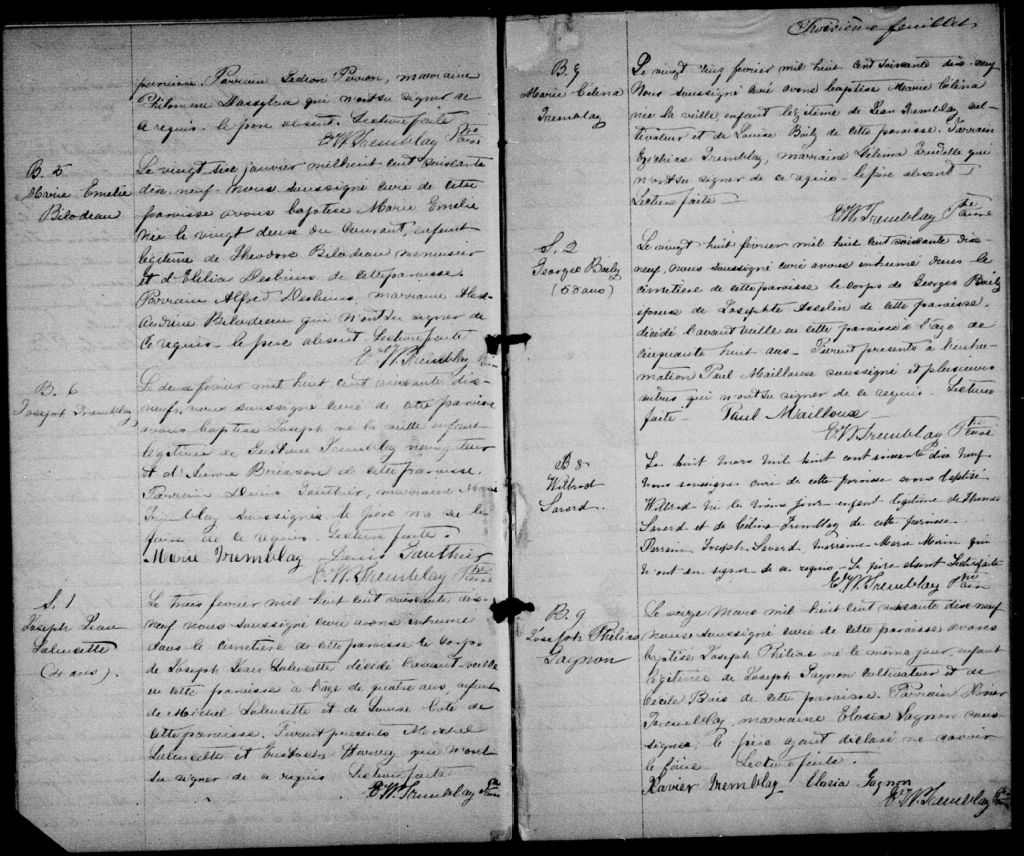 paroisse. Parrain Gedeon Perron, marraine
Philomène Dassylva qui n'ont su signer de
ce requis. le père absent. Lecture faite
E W. Tremblay Ptre Curé
B. 5
Marie Emelie
Bilodeau
Le vingt six janvier mil huit cent soixante
dix-neuf nous soussigné curé de cette
paroisse avons baptisé Marie Emelie
née le vingt deux du courant, enfant
légitime de Théodore Bilodeau menuisier
et d' Desbiens de cette paroisse.
Parrain Alfred Desbiens, marraine Alex-
andrine Bilodeau qui n'ont su signer de
ce requis. le père absent. Lecture faite
E W. Tremblay Ptre Curé
B. 6
Joseph Tremblay
Le deux février mil huit cent soixante dix-
neuf, nous soussigné curé de cette paroisse
avons baptisé Joseph né la veille enfant
légitime de Tremblay
et d'Aurore Brisson de cette paroisse.
Parrain Denis Gauthier, marraine Marie
Tremblay soussignés le père n'a su le
faire de ce requis. Lecture faite.
Marie Tremblay Denis Gauthier
E W. Tremblay Ptre Curé
S. 1
Joseph Léan
Lalancette
(4 ans).
Le trois février mil huit cent soixante dix-
neuf nous soussigné curé avons inhumé
dans le cimetière de cette paroisse le corps
de Joseph Léan Lalancette décédé l'avant veille
en cette paroisse à l'age de quatre ans, enfant
de Michel Lalancette et de Louise Coté de
cette paroisse. Furent présents Michel
Lalancette et Eustache Harvey qui n'ont
su signer de ce requis Lecture faite
E W. Tremblay Ptre Curé
Troisième feuillet
B. 7
Marie Célina
Tremblay
Le vingt février mil huit cent soixante dix-neuf
Nous soussigné curé avons baptisé Marie Célina
née la veille, enfant légitime de Léan Tremblay cul-
tivateur et de Louise Boily de cette paroisse. Parrain
Ezéchias Tremblay, marraine Trudelle qui
n'ont su signer de ce requis - le père absent
Lecture faite -
E W. Tremblay Ptre Curé
S. 2
Georges Boily
(58 ans)
Le vingt huit février mil huit cent soixante dix-
neuf, nous soussigné curé avons inhumé dans le
cimetière de cette paroisse le corps de Georges Boily
époux de Josephte Asselin de cette paroisse.
décédé l'avant veille en cette paroisse à l'age de
cinquante huit ans - Furent présents à l'inhu-
mation Paul Mailloux soussigné et plusieurs
autres qui n'ont su signer de ce requis - Lecture
faite - Paul Mailloux
E W. Tremblay Ptre Curé
B 8
Wilbrod
Savard.
Le huit mars mil huit cent soixante dix neuf
nous soussigné curé de cette paroisse avons baptisé
Wilbrod né le même jour enfant légitime de Thomas
Savard et de Célina Tremblay de cette paroisse
Parrain Joseph Savard marraine Marie Morin qui
n'ont su signer de ce requis - Le père absent Lecture faite
E W. Tremblay Ptre Curé
B. 9
Joseph Philias
Gagnon
Le onze Mars mil huit cent soixante dix-neuf
nous soussigné curé de cette paroisse avons
baptisé Joseph Philias né le même jour, enfant
légitime de Joseph Gagnon cultivateur et de
Cécile Bois de cette paroisse. Parrain Xavier
Tremblay marraine Elosia Gagnon sous-
signés, le père ayant déclaré ne savoir
le faire. Lecture faite.
Xavier Tremblay Elosia Gagnon
E W. Tremblay Ptre Curé